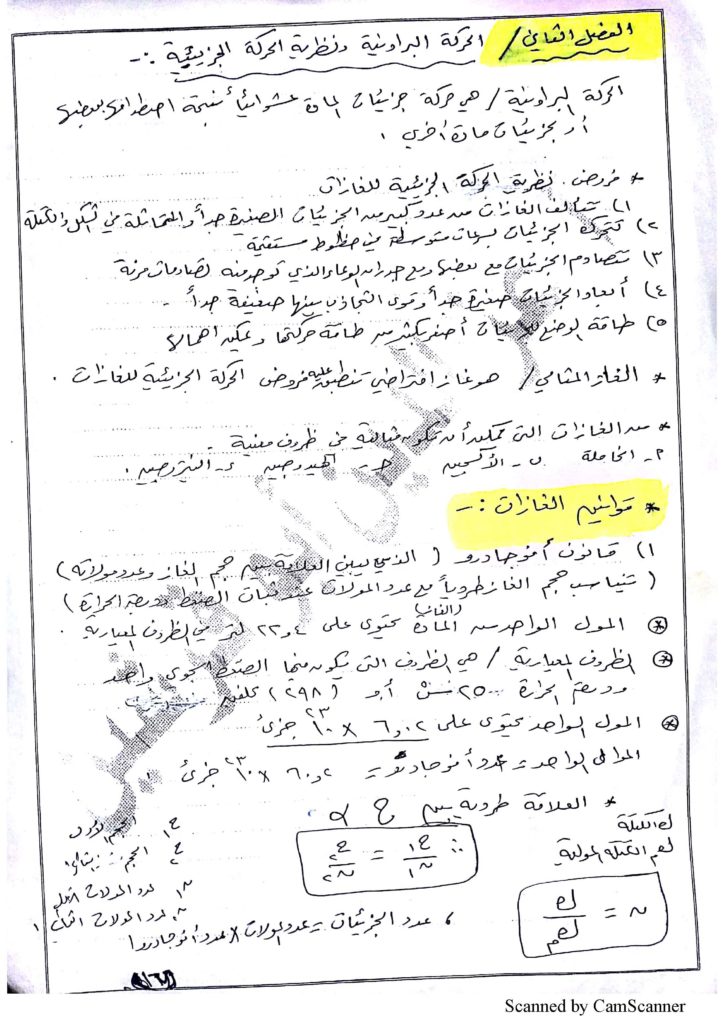 الفصل الثاني / الحركة البراونية ونظرية الحركة الجزيئية :-
الحركة البراونية / هي حركة جزيئات المادة عشوائياً نتيجة اصطدامها ببعضها
أو بجزيئات مادة أخرى .
* فروض نظرية الحركة الجزيئية للغازات
١) تتألف الغازات من عدد كبير من الجزيئات الصغيرة جداً والمتماثلة في الشكل والكتلة
٢) تتحرك الجزيئات بسرعات متوسطة في خطوط مستقيمة
٣) تتصادم الجزيئات مع بعضها ومع جدران الوعاء الذي توجد فيه تصادمات مرنة
٤) أبعاد الجزيئات صغيرة جداً وقوى التجاذب بينها ضعيفة جداً -
٥) طاقة الوضع للجزيئات أصغر بكثير من طاقة حركتها ويمكن اهمالها
* الغاز المثالي / هو غاز افتراضي تنطبق عليه فروض الحركة الجزيئية للغازات .
* من الغازات التي يمكن أن تكون مثالية في ظروف معينة -
٢- الخاملة ب- الأكسجين حـ- الهيدروجين ء- النيتروجين .
* قوانين الغازات :-
١) قانون أفوجادرو ( الذي يبين العلاقة بين حجم الغاز وعدد مولاته )
( تتناسب حجم الغاز طردياً مع عدد المولات عند ثبات الضغط ودرجة الحرارة )
* المول الواحد من المادة (الغاز) يحتوي على ٢٢٫٤ لتر في الظروف المعيارية .
* الظروف المعيارية / هي الظروف التي يكون فيها الضغط الجوي واحد
ودرجة الحرارة ٢٥ سْ أو (٢٩٨) كلفن
* المول الواحد يحتوي على ٦٫٠٢ × ١٠²³ جزئ
الموال الواحد = عدد أفوجادرو = ٦٫٠٢ × ١٠²³ جزئ
* العلاقة طردية بين ح α ن
∴ ح١/ن١ = ح٢/ن٢
ح١ الحجم الأول
ح٢ الحجم الثاني
ن١ عدد المولات الأول
ن٢ عدد المولات الثاني
ك الكتلة
كم الكتلة المولية
ن = ك/كم
، عدد الجزيئات = عدد المولات × عدد أفوجادرو
(١٦)
Scanned by CamScanner